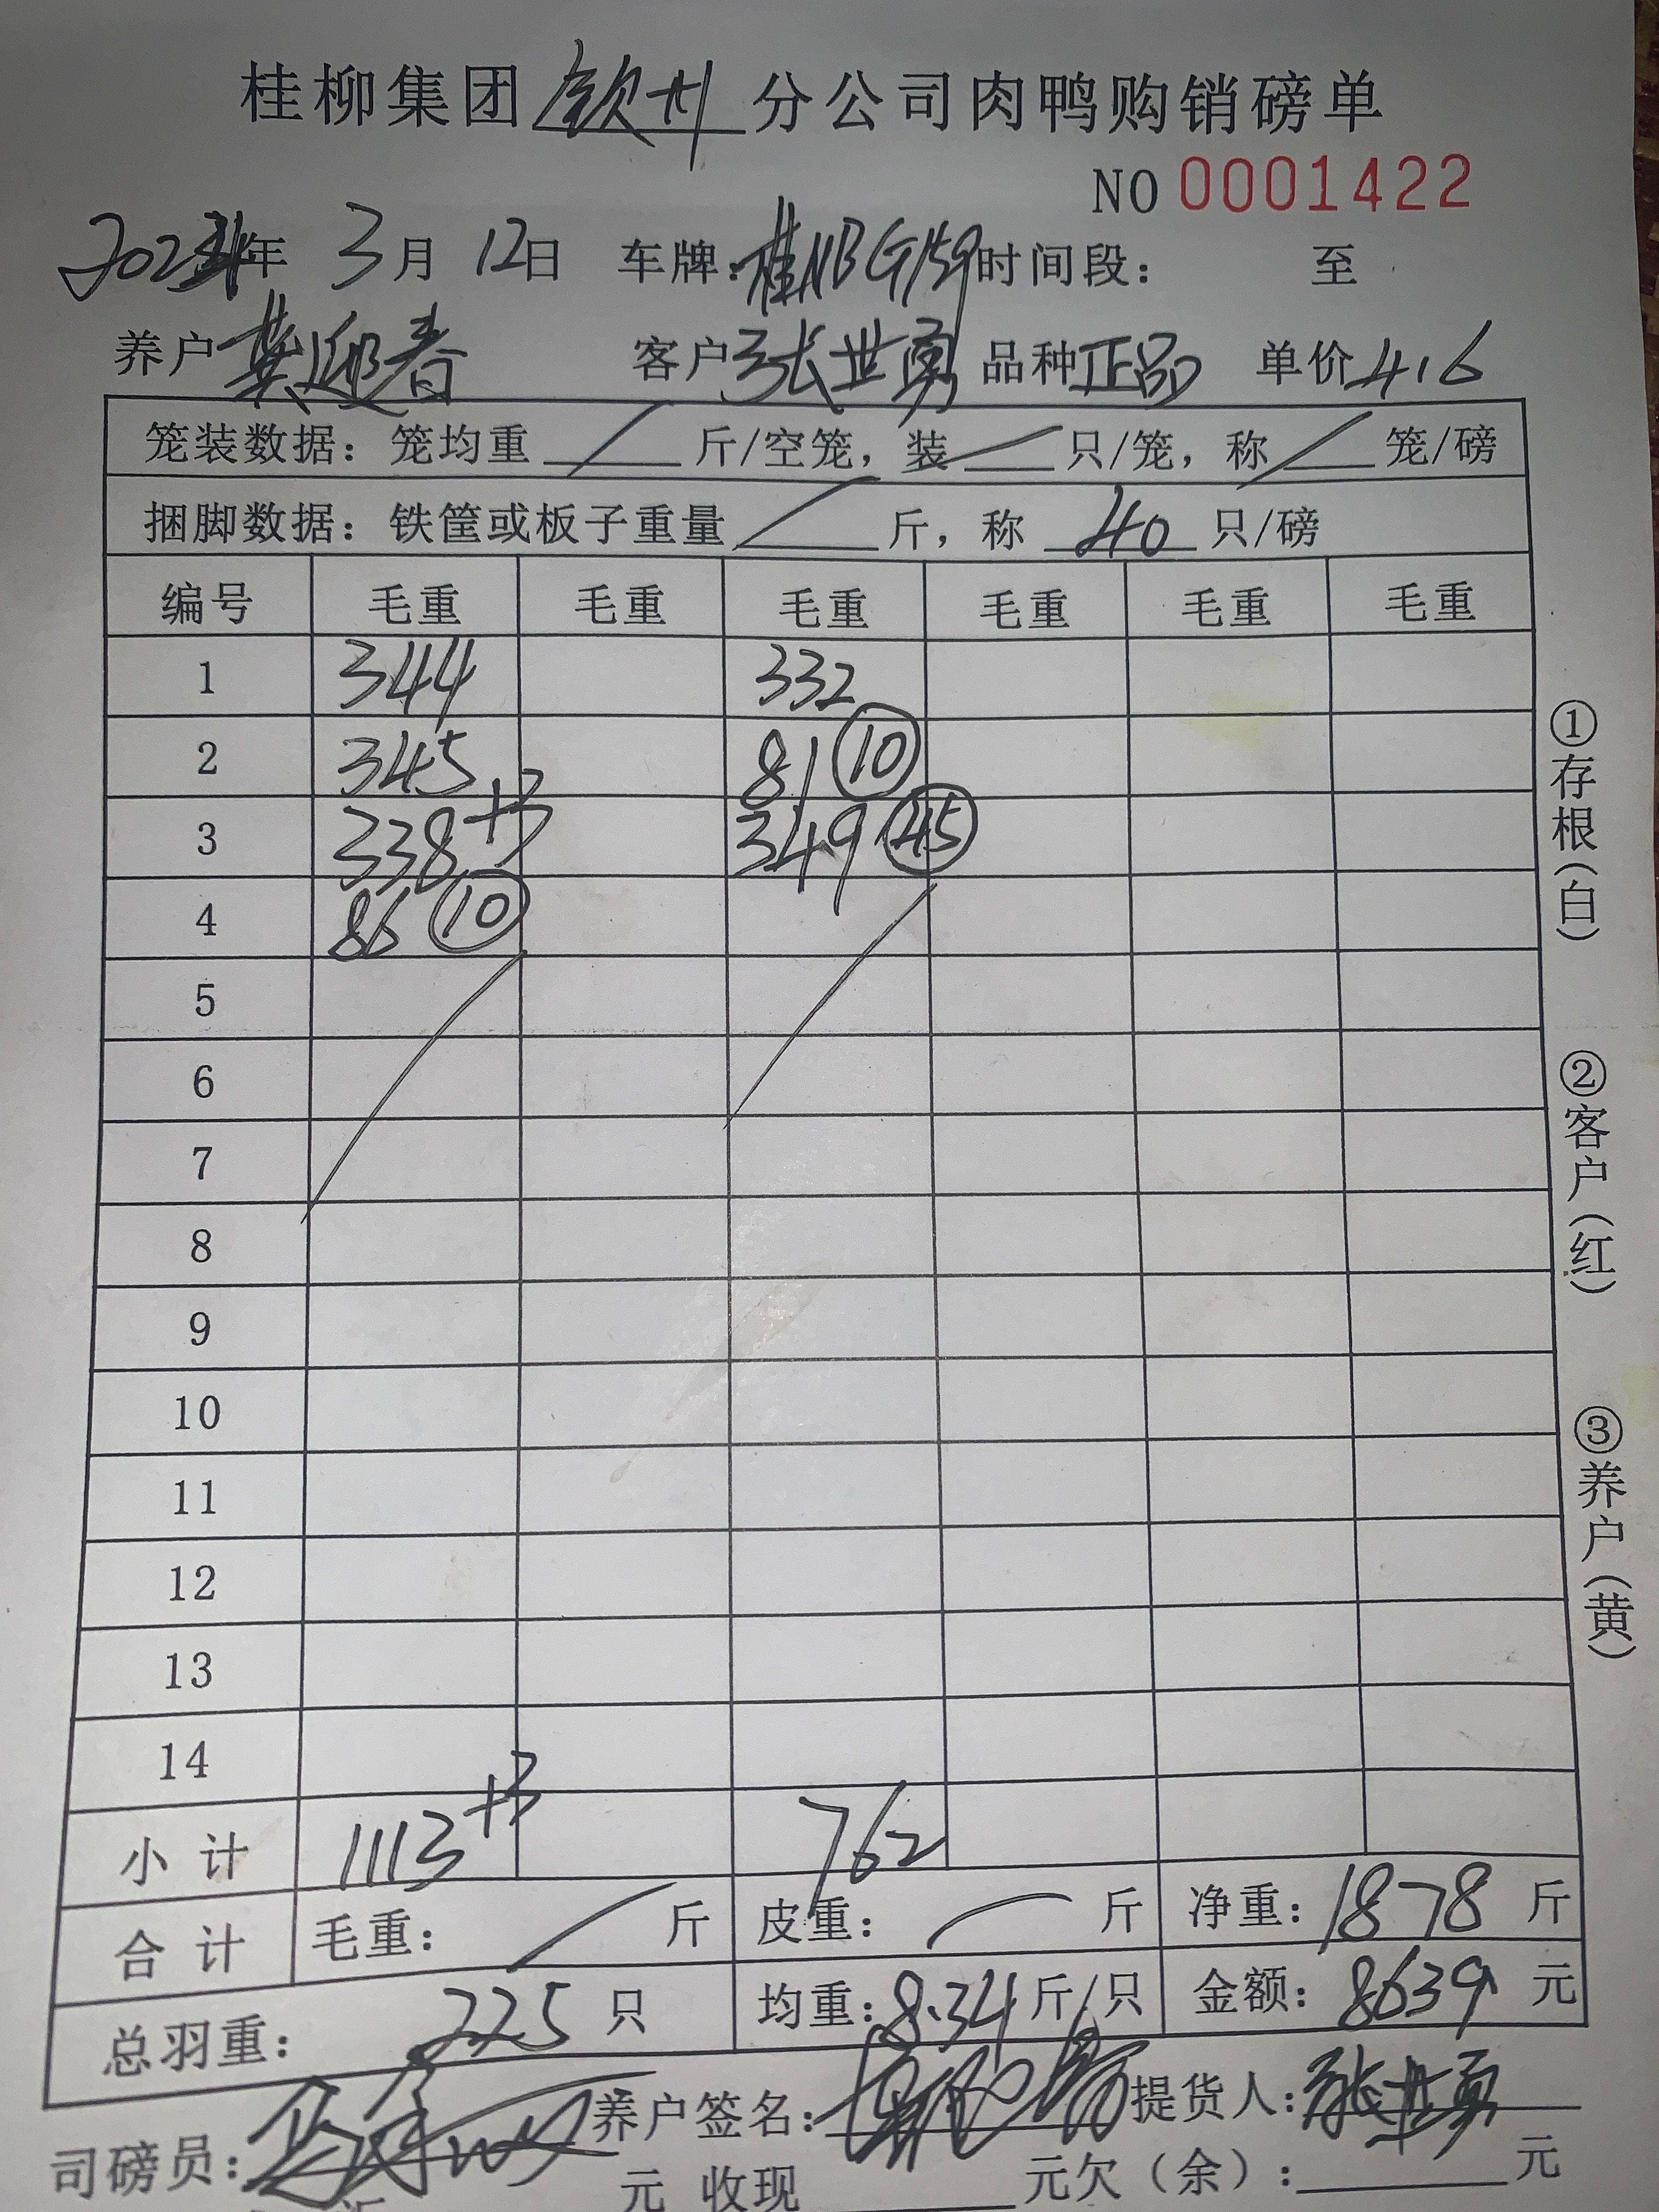 桂柳集团钦州分公司肉鸭购销磅单
NO 0001422
年 3月 12日 车牌:桂NBG159 时间段: 至
养户 龚迎春 客户 张世勇 品种 正品 单价 4.6
笼装数据: 笼均重 / 斤/空笼, 装 / 只/笼, 称 / 笼/磅
捆脚数据: 铁筐或板子重量 / 斤, 称 40 只/磅
编号 毛重 毛重 毛重 毛重 毛重 毛重
1 344 332
2 345 81 ⑩
3 338+3 349 ㊺
4 86 ⑩
5
6
7
8
9
10
11
12
13
14
小计 1113+3 762
合计 毛重: / 斤 皮重: / 斤 净重: 1878 斤
总羽重: 225 只 均重: 8.34 斤/只 金额: 8639 元
司磅员: 养户签名: 提货人: 张世勇
元 收现 元欠(余): 元
①存根(白)
②客户(红)
③养户(黄)